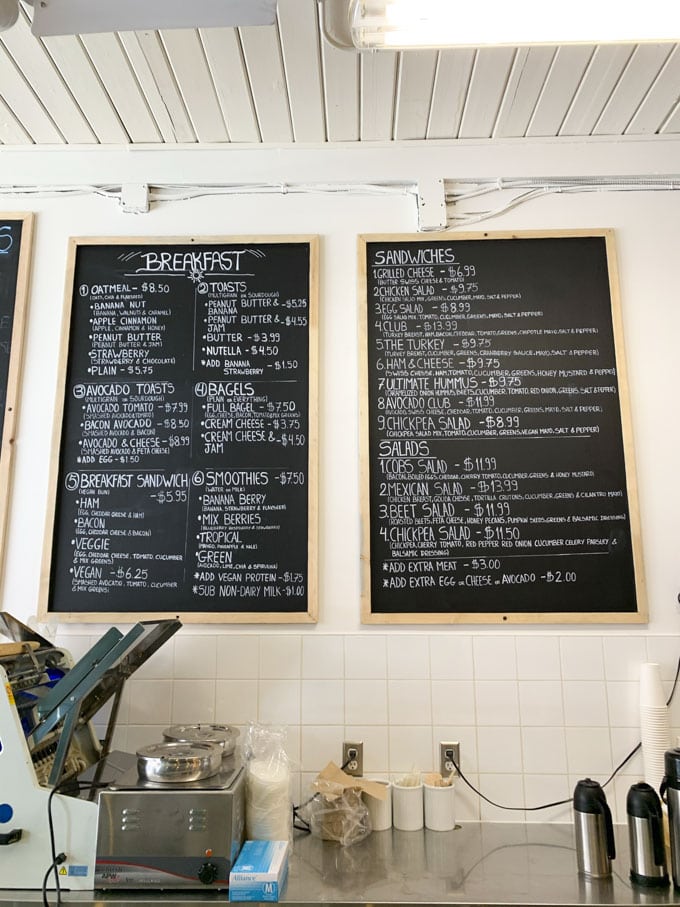 S
BREAKFAST
① OATMEAL - $8.50
(OATS, CHIA & FLAXSEED)
• BANANA NUT
(BANANA, WALNUTS & CARAMEL)
• APPLE CINNAMON
(APPLE, CINNAMON & HONEY)
• PEANUT BUTTER
(PEANUT BUTTER & JAM)
• STRAWBERRY
(STRAWBERRY & CHOCOLATE)
• PLAIN - $5.75
② TOASTS
(MULTIGRAIN OR SOURDOUGH)
• PEANUT BUTTER & BANANA - $5.25
• PEANUT BUTTER & JAM - $4.55
• BUTTER - $3.99
• NUTELLA - $4.50
* ADD BANANA STRAWBERRY - $1.50
③ AVOCADO TOASTS
(MULTIGRAIN OR SOURDOUGH)
• AVOCADO TOMATO - $7.99
(SMASHED AVOCADO & TOMATO)
• BACON AVOCADO - $8.50
(SMASHED AVOCADO & BACON)
• AVOCADO & CHEESE - $8.99
(SMASHED AVOCADO & FETA CHEESE)
* ADD EGG - $1.50
④ BAGELS
(PLAIN OR EVERYTHING)
• FULL BAGEL - $7.50
(EGG, CHEESE, BACON, TOMATO & MIX GREENS)
• CREAM CHEESE - $3.75
• CREAM CHEESE & JAM - $4.50
⑤ BREAKFAST SANDWICH
(VEGAN BUN) - $5.95
• HAM
(EGG, CHEDDAR CHEESE & HAM)
• BACON
(EGG, CHEDDAR CHEESE & BACON)
• VEGGIE
(EGG, CHEDDAR CHEESE, TOMATO, CUCUMBER
& MIX GREENS)
• VEGAN - $6.25
(SMASHED AVOCADO, TOMATO, CUCUMBER
& MIX GREENS)
⑥ SMOOTHIES - $7.50
(WATER OR MILK)
• BANANA BERRY
(BANANA, STRAWBERRY & FLAXSEED)
• MIX BERRIES
(BLUEBERRY, RASPBERRY & STRAWBERRY)
• TROPICAL
(MANGO, PINEAPPLE & KALE)
• GREEN
(AVOCADO, LIME, CHIA & SPIRULINA)
* ADD VEGAN PROTEIN - $1.75
* SUB NON-DAIRY MILK - $1.00
SANDWICHES
1. GRILLED CHEESE - $6.99
(BUTTER, SWISS CHEESE & TOMATO)
2. CHICKEN SALAD - $9.75
(CHICKEN SALAD MIX, GREENS, CUCUMBER, MAYO, SALT & PEPPER)
3. EGG SALAD - $8.99
(EGG SALAD MIX, TOMATO, CUCUMBER, GREENS, MAYO, SALT & PEPPER)
4. CLUB - $13.99
(TURKEY BREAST, HAM, BACON, CHEDDAR, TOMATO, GREENS, CHIPOTLE MAYO, SALT & PEPPER)
5. THE TURKEY - $9.75
(TURKEY BREAST, CUCUMBER, GREENS, CRANBERRY SAUCE, MAYO, SALT & PEPPER)
6. HAM & CHEESE - $9.75
(SWISS CHEESE, HAM, TOMATO, CUCUMBER, GREENS, HONEY MUSTARD & PEPPER)
7. ULTIMATE HUMMUS - $9.75
(CARAMELIZED ONION HUMMUS, BEETS, CUCUMBER, TOMATO, RED ONION, GREENS, SALT & PEPPER)
8. AVOCADO CLUB - $11.99
(AVOCADO, SWISS CHEESE, CHEDDAR, TOMATO, CUCUMBER, GREENS, MAYO, SALT & PEPPER)
9. CHICKPEA SALAD - $8.99
(CHICKPEA SALAD MIX, TOMATO, CUCUMBER, GREENS, VEGAN MAYO, SALT & PEPPER)
SALADS
1. COBS SALAD - $11.99
(BACON, BOILED EGGS, CHEDDAR, CHERRY TOMATO, CUCUMBER, GREENS & HONEY MUSTARD)
2. MEXICAN SALAD - $13.99
(CHICKEN BREAST, COTIJA CHEESE, TORTILLA CRUTONS, CUCUMBER, GREENS & CILANTRO MAYO)
3. BEET SALAD - $11.99
(ROASTED BEETS, FETA CHEESE, HONEY PECANS, PUMPKIN SEEDS, GREENS & BALSAMIC DRESSING)
4. CHICKPEA SALAD - $11.50
(CHICKPEA, CHERRY TOMATO, RED PEPPER, RED ONION, CUCUMBER, CELERY, PARSLEY &
BALSAMIC DRESSING)
* ADD EXTRA MEAT - $3.00
* ADD EXTRA EGG OR CHEESE OR AVOCADO - $2.00
APW
Alliance
M